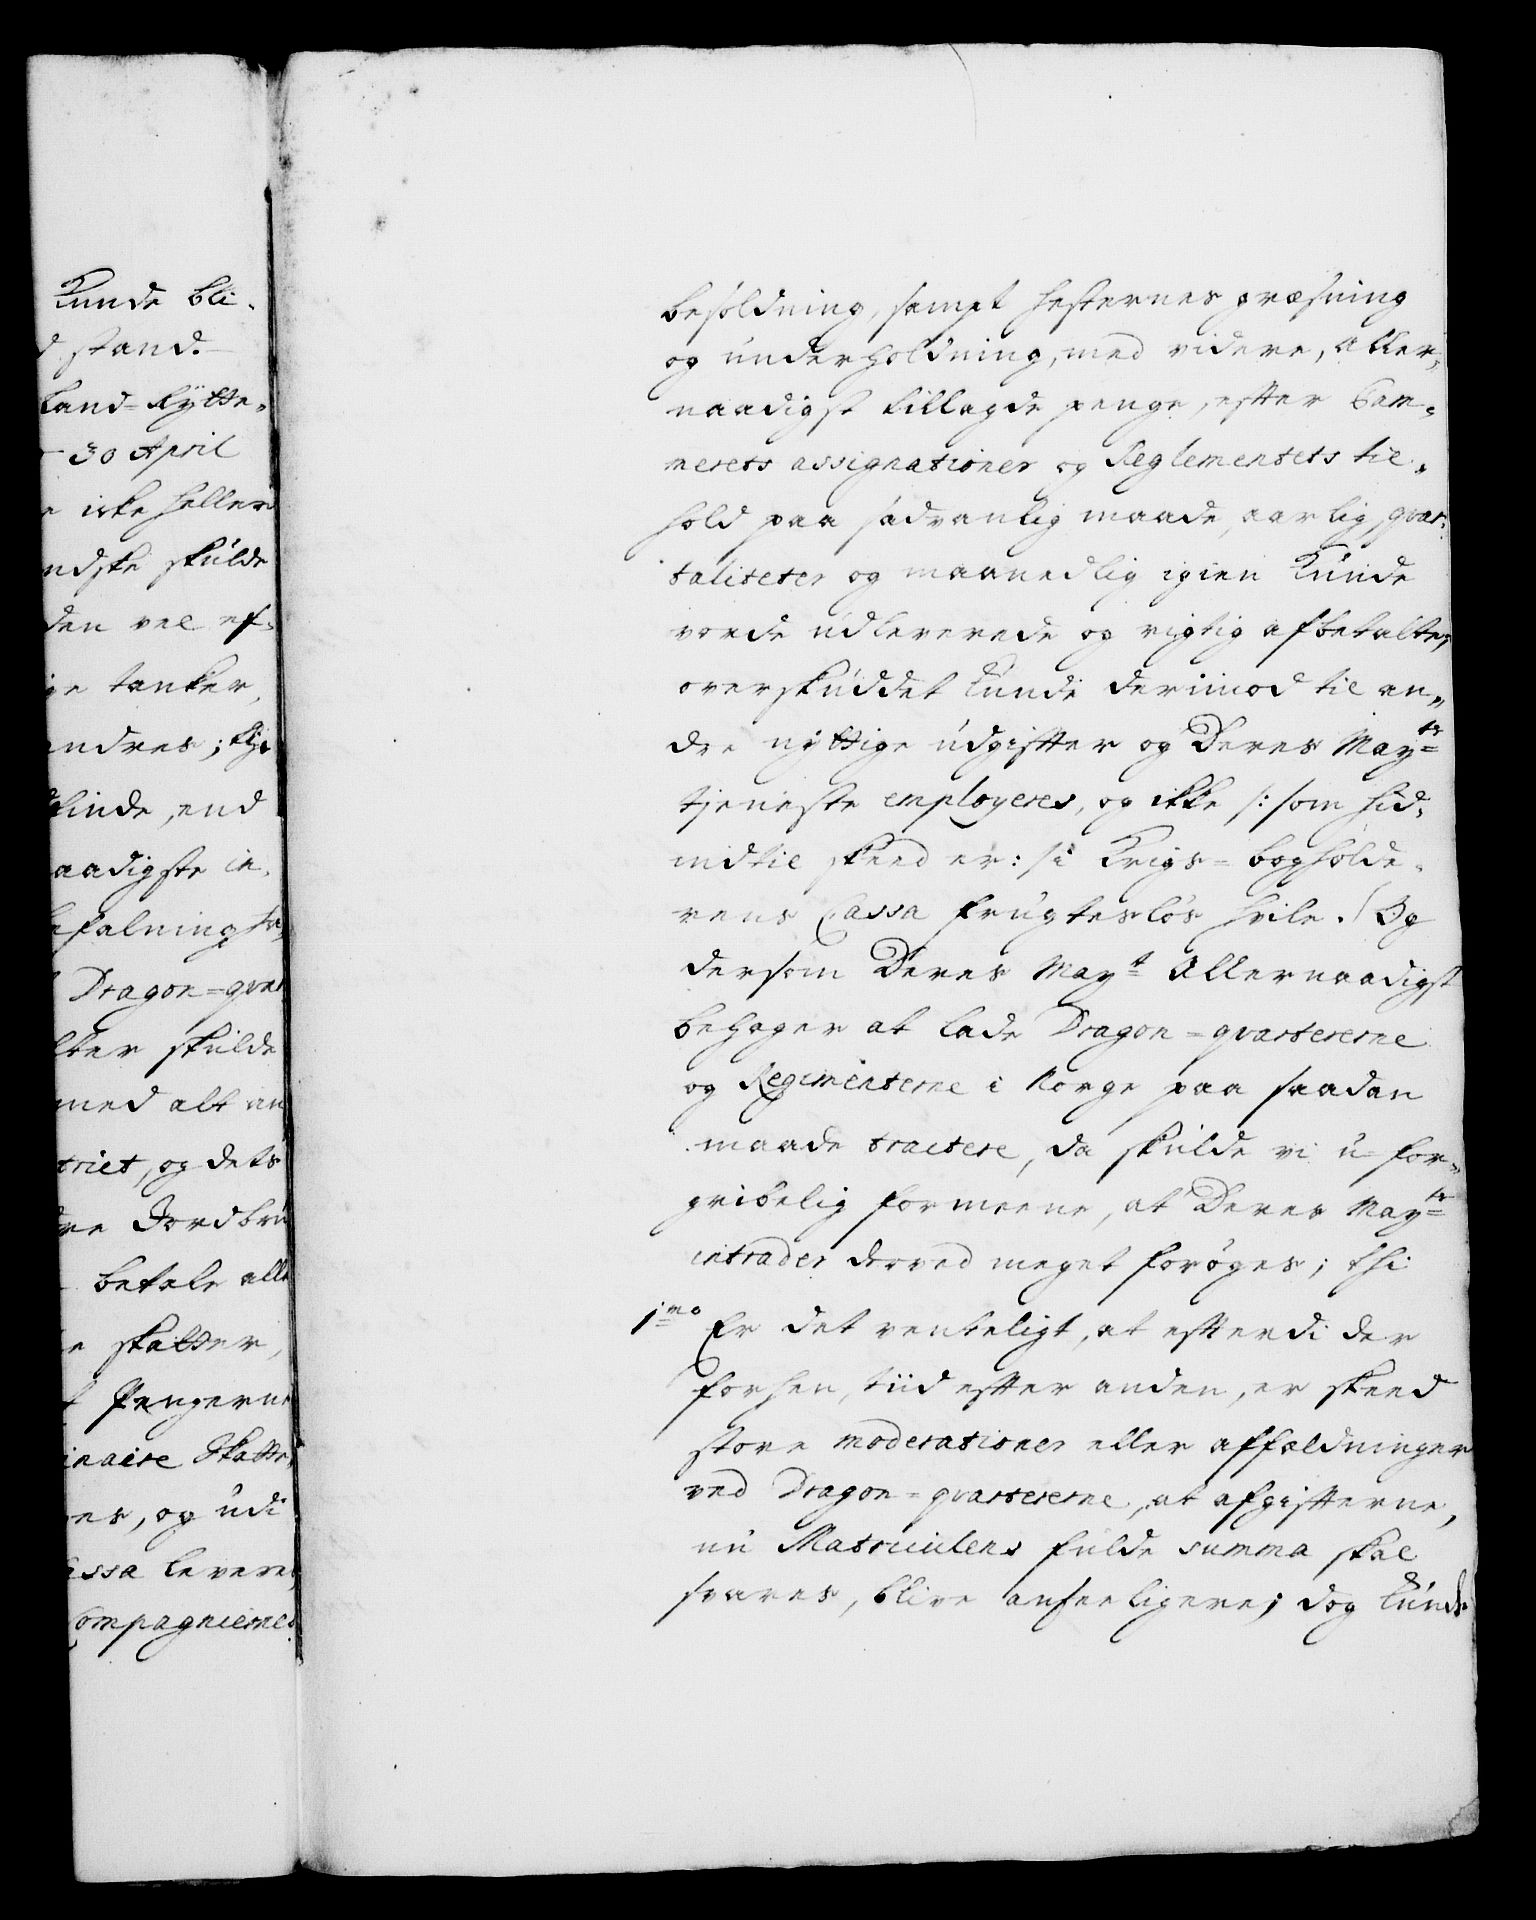 Kunde bli-
d stand.
Land-Rÿtte-
30 April
e icke heller
ndske skulde
den vel ef-
ge tanker,
endres; thi
kinde, end
aadigste in-
efalning sa-
Dragon-qvar
lter skulde
med alt an
trict, og dets
dre Jordbru
betale alle
e skatter,
t Pengerne
inaire Skatte,
es, og udi
assa levere,
Compagniernes
besoldning, sampt hesternes græsning
og underholdning, med videre, aller-
naadigst tillagde penge, efter Cam-
merets assignationer og Reglementets til-
hold paa sædvanlig maade, aarlig, qvar-
taliteter og maanedlig igien Kunde
vorde udleverede og rigtig afbetalte,
overskuddet Kunde derimod til an-
dre nÿttige udgifter og Deres Mayts
tjeneste employeres, og ikke /: som hid-
indtil skeed er :/ i Krigs-bogholde-
rens Cassa frugtesløs hvile. / Og
dersom Deres Mayt Allernaadigst
behager at lade Dragon-qvartererne
og Regimenterne i Norge paa saadan
maade tractere, da skulde vi u-for-
gribelig formeene, at Deres Mayts
intrader derved meget forøges; thi
1mo Er det venteligt, at efterdi der
forhen, tiid efter anden, er skeed
store moderationer eller affældninger
ved Dragon-qvartererne, at afgifterne,
nu Matriculens fulde summa skal
svares, blive anseeligere; dog Kunde